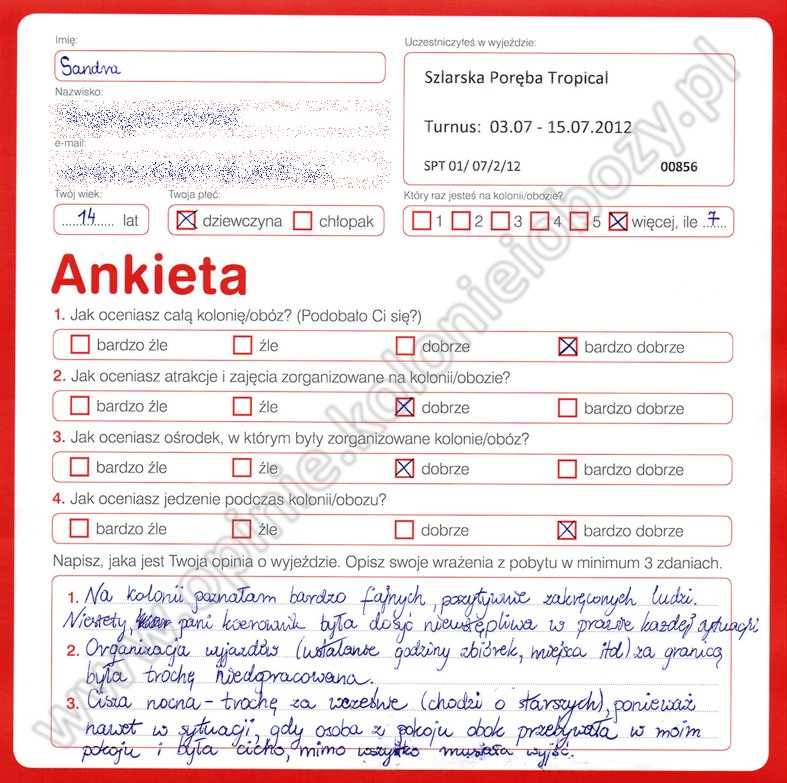 Imię:
Sandra
Nazwisko:
e-mail:
Uczestniczyłeś w wyjeździe:
Szlarska Poręba Tropical
Turnus: 03.07 - 15.07.2012
SPT 01/ 07/2/12 00856
Twój wiek:
14 lat
Twoja płeć:
dziewczyna chłopak
Który raz jesteś na kolonii/obozie?
1 2 3 4 5 więcej, ile 7
Ankieta
1. Jak oceniasz całą kolonię/obóz? (Podobało Ci się?)
bardzo źle źle dobrze bardzo dobrze
2. Jak oceniasz atrakcje i zajęcia zorganizowane na kolonii/obozie?
bardzo źle źle dobrze bardzo dobrze
3. Jak oceniasz ośrodek, w którym były zorganizowane kolonie/obóz?
bardzo źle źle dobrze bardzo dobrze
4. Jak oceniasz jedzenie podczas kolonii/obozu?
bardzo źle źle dobrze bardzo dobrze
Napisz, jaka jest Twoja opinia o wyjeździe. Opisz swoje wrażenia z pobytu w minimum 3 zdaniach.
1. Na kolonii poznałam bardzo fajnych, pozytywnie zakręconych ludzi.
Niestety, pani kierownik była dosyć nieustępliwa w prawie każdej sytuacji
2. Organizacja wyjazdów (ustalanie godziny zbiórek, miejsca itd) za granicą
była trochę niedopracowana.
3. Cisza nocna - trochę za wcześnie (chodzi o starszych), ponieważ
nawet w sytuacji, gdy osoba z pokoju obok przebywała w moim
pokoju i była cicho, mimo wszystko musiała wyjść.
www.opinie.kolonieiobozy.pl